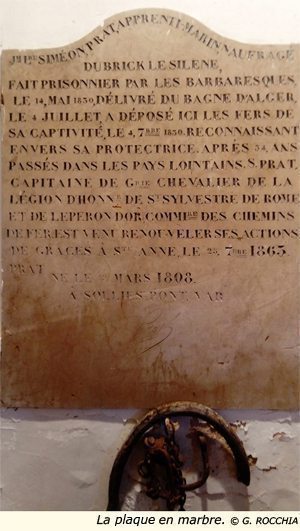 JH. IRE. SIMÉON PRAT, APPRENTI-MARIN NAUFRAGÉ
DU BRICK LE SILÈNE,
FAIT PRISONNIER PAR LES BARBARESQUES,
LE 14, MAI 1830, DÉLIVRÉ DU BAGNE D'ALGER,
LE 4 JUILLET, A DÉPOSÉ ICI LES FERS DE
SA CAPTIVITÉ, LE 4, 7BRE 1830. RECONNAISSANT
ENVERS SA PROTECTRICE. APRÈS 34, ANS
PASSÉS DANS LES PAYS LOINTAINS, S. PRAT,
CAPITAINE DE GRIE CHEVALIER DE LA
LÉGION D'HONNR DE ST SYLVESTRE DE ROME
ET DE LEPERON DOR, COMMIRE DES CHEMINS
DE FER EST VENU RENOUVELER SES ACTIONS
DE GRACES À STE ANNE, LE 25, 7BRE 1863.
PRAT
NÉ LE MARS 1808.
À SOLLIÈS-PONT VAR
La plaque en marbre. © G. ROCCHIA